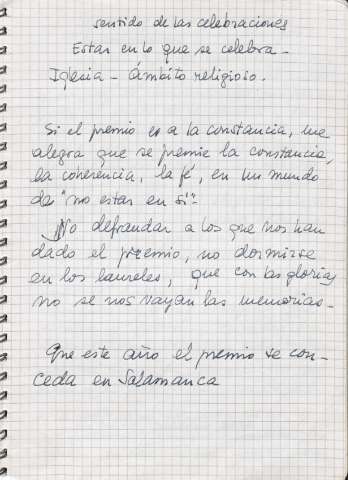 sentido de las celebraciones
Estar en lo que se celebra -
Iglesia - Ámbito religioso.
Si el premio es a la constancia, me
alegra que se premie la constancia,
la coherencia, la fé, en un mundo
de "no estar en sí".
No defraudar a los que nos han
dado el premio, no dormirse
en los laureles, que con las glorias
no se nos vayan las memorias -
Que este año el premio se con-
ceda en Salamanca